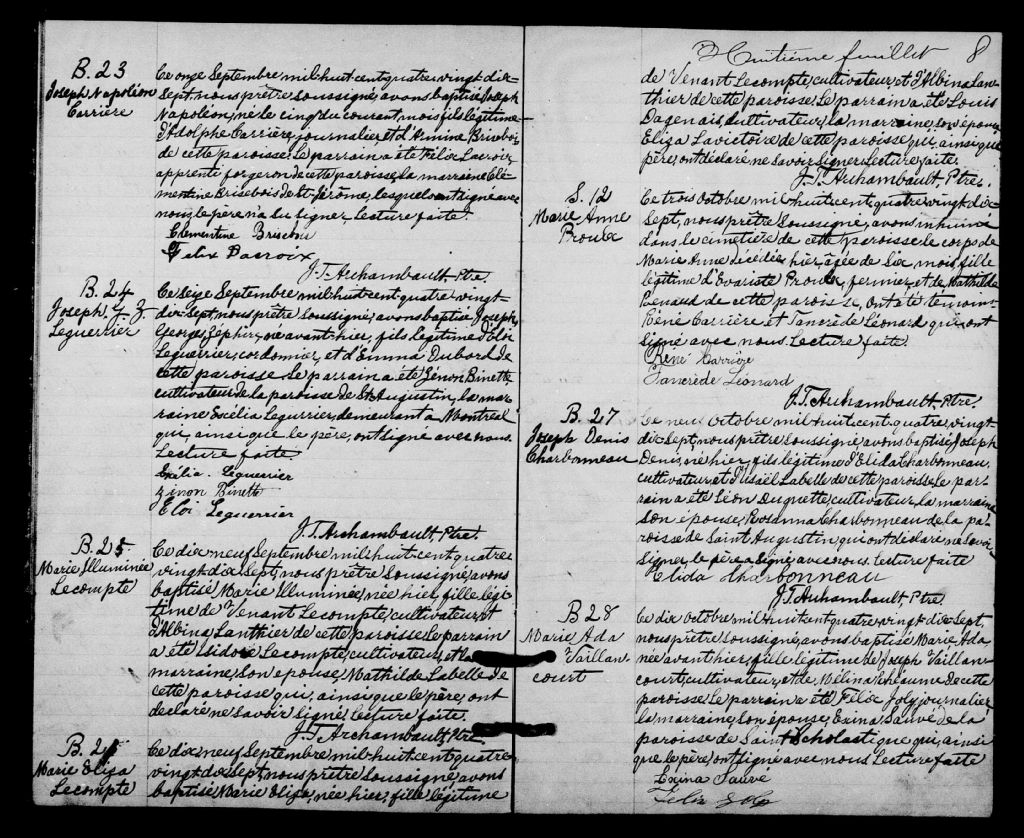 B. 23
Joseph Napoléon
Carrière
Ce onze Septembre mil huit cent quatre vingt dix-
Sept, nous prêtre soussigné, avons baptisé Joseph
Napoléon, né le cinq du courant mois fils légitime
d'Adolphe Carrière, journalier, et d'Brisebois
de cette paroisse. Le parrain a été Félix Lacroix
apprenti forgeron de cette paroisse, la marraine Clé-
mentine Brisebois de St. Jérôme, lesquels ont signé avec
nous, le père n'a su signer, lecture faite.
Clementine Brisebois
Felix Lacroix
J. T. Archambault, Ptre
B. 24
Joseph. G. Z.
Leguerrier
Ce seize Septembre mil huit cent quatre vingt-
dix-Sept, nous prêtre soussigné, avons baptisé Joseph,
George, Zéphir, né avant-hier, fils légitime d'Eloi
Leguerrier, cordonnier, et d'Emma Dubord de
cette paroisse Le parrain a été Zénon Binette
cultivateur de la paroisse de St. Augustin, la mar-
raine Exélia Legurrier, demeurant a Montréal
qui, ainsi que le père, ont signé avec nous.
Lecture faite
Exélia Leguerrier
Zinon Binette
Eloi Leguerrier
J. T. Archambault, Ptre.
B. 25
Marie Illuminée
Lecompte
Ce dix neuf Septembre mil huit cent quatre
vingt dix Sept, nous prêtre soussigné, avons
baptisé Marie Illuminée, née hier, fille légi-
time de Venant Lecompte, cultivateur, et
d'Albina Lanthier de cette paroisse. Le parrain
a été Isidore Lecompte, cultivateur, et la
marraine, son épouse, Mathilde Labelle de
cette paroisse qui, ainsi que le père, ont
déclaré ne savoir signé, lecture faite.
J. T. Archambault, Ptre
B. 26
Marie Eliza
Lecompte
Ce dix neuf Septembre mil huit cent quatre
vingt dix Sept, nous prêtre soussigné avons
baptisé Marie Eliza, née hier, fille légitime
Huitième feuillet 8
de Venant Lecompte, cultivateur, et d'Albina Lan-
thier de cette paroisse. Le parrain a été Louis
Dagenais, cultivateur, la marraine son épouse
Eliza Lavictoire de cette paroisse qui, ainsi que
père, ont déclaré ne savoir signer. Lecture faite.
J. T. Archambault, Ptre.
S. 12
Marie Anne
Proulx
Ce trois Octobre mil huit cent, quatre vingt dix
Sept, nous prêtre soussigné, avons inhumé
dans le cimetière de cette paroisse le corps de
Marie Anne décédée hier, âgée de six mois, fille
légitime d'Evariste Proulx, fermier, et de Mathilde
Renaud de cette paroisse, Ont été témoins
Réné Carrière et Tancrède Léonard qui ont
signé avec nous. Lecture faite.
René Carrière
Tancrède Léonard
J. T. Archambault, Ptre.
B. 27
Joseph Denis
Charbonneau
Ce neuf Octobre mil huit cent quatre, vingt-
dix Sept, nous prêtre soussigné, avons baptisé Joseph
Denis, né hier, fils légitime d'Elida Charbonneau,
cultivateur, et d' Labelle de cette paroisse, le par-
rain a été Léon Duquette, cultivateur, la marraine
son épouse, Rosanna Charbonneau de la pa-
roisse de Saint Augustin, qui ont déclaré ne savoir
signer, le père a signé avec nous. Lecture faite
Elida Charbonneau
J. T. Archambault, Ptre
B 28
Marie Ada
Vaillan-
court
Ce dix Octobre mil Huit cent, quatre vingt dix Sept,
nous prêtre soussigné, avons baptisé Marie, Ada,
née avant hier, fille légitime de Joseph Vaillan-
court, cultivateur, et de Mélina de cette
paroisse Le parrain a été Félix Joly, journalier
la marraine, son épouse, Exina Sauvé de la
paroisse de Saint Scholastique qui, ainsi
que le père, ont signé avec nous Lecture faite
Exina Sauvé
Félix Joly